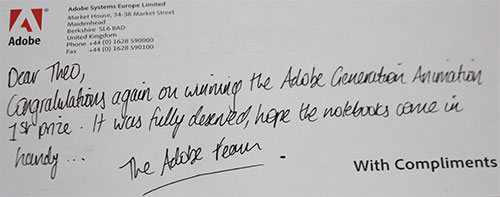 Adobe Systems Europe Limited
Market House, 34-38 Market Street
Maidenhead
Berkshire SL6 8AD
United Kingdom
Phone +44 (0) 1628 590000
Fax +44 (0) 1628 590100
Adobe
Dear Theo,
Congratulations again on winning the Adobe Generation Animation
1st prize. It was fully deserved, hope the notebooks come in
handy ...
The Adobe team.
With Compliments